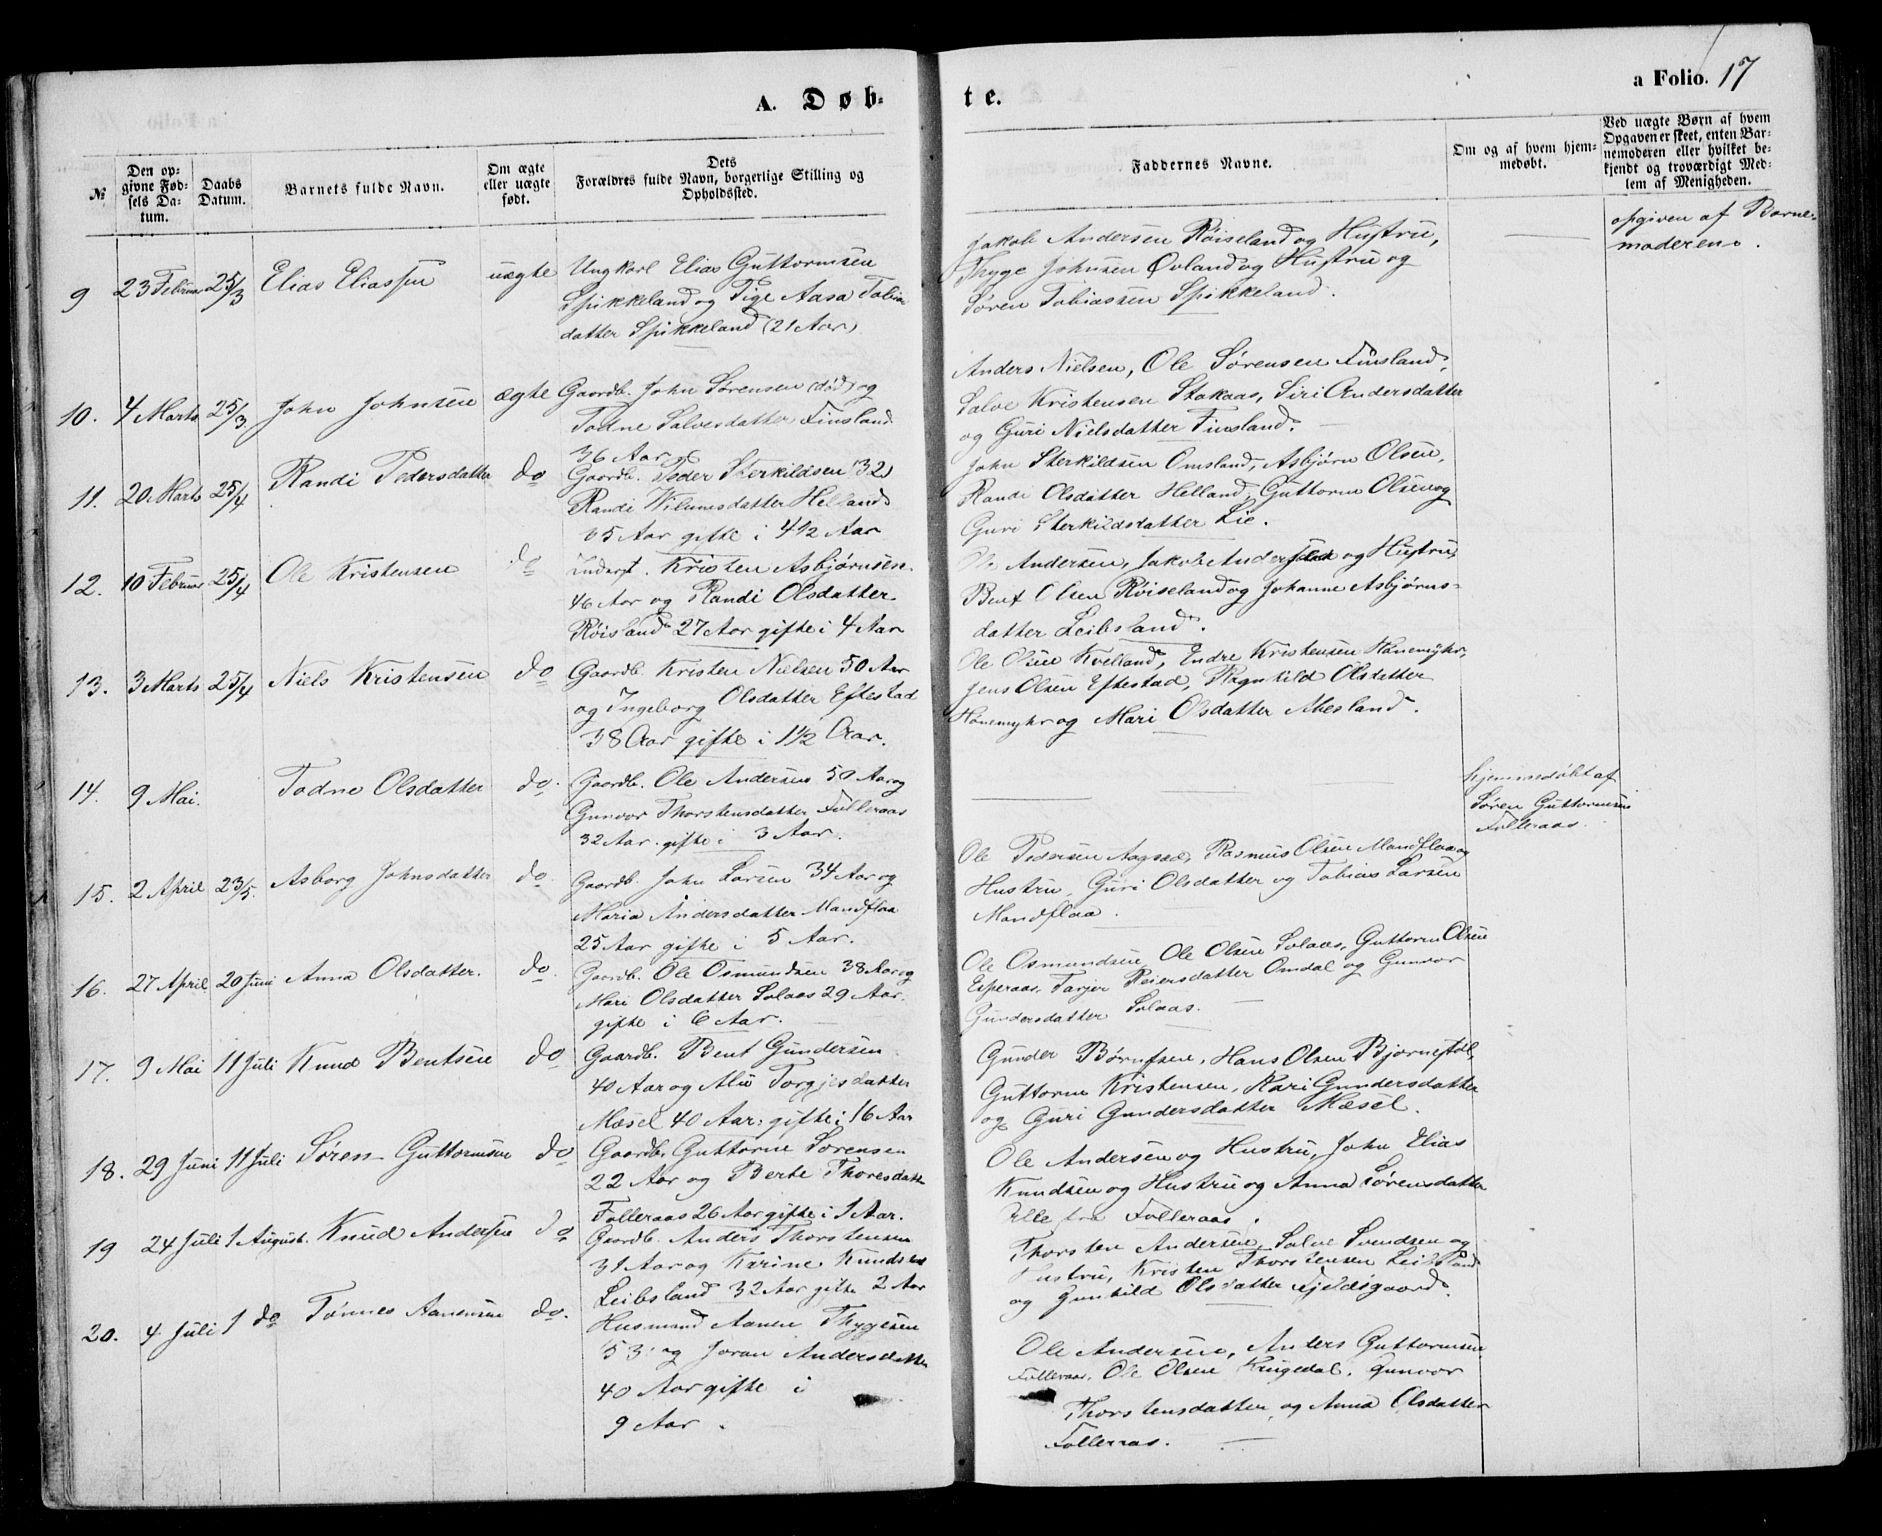 A. Døb-
te.
a Folio. 17
№
Den op-
givne Fød-
sels Da-
tum.
Daabs
Datum.
Barnets fulde Navn.
Om ægte
eller uægte
født.
Dets
Forældres fulde Navn, borgerlige Stilling og
Opholdssted.
Faddernes Navne.
Om og af hvem hjem-
medøbt.
Ved uægte Børn af hvem
Opgaven er skeet, enten Bar-
nemoderen eller hvilket be-
kjendt og troværdigt Med-
lem af Menigheden.
9 23 Februar 25/3 Elias Eliassen uægte
Ungkarl Elias Guttormsen
Spikkeland og Pige Aasa Tobias
datter Spikkeland (21 Aar)
Jakob Andersen Røiseland og Hustru,
Thyge Johnsen Øvland og Hustru og
Søren Tobiassen Spikkeland.
opgiven af Barne-
moderen.
10. 4 Marts 25/3 John Johnsen ægte
Gaardb. John Sørensen (død) og
Todne Salvesdatter Finsland
36 Aar
Anders Nielsen, Ole Sørensen Finsland,
Salve Kristensen Stakaas, Siri Andersdatter
og Guri Nielsdatter Finsland.
11. 20 Marts 25/4 Randi Pedersdatter do
Gaardb. Peder Sterkildsen 32
Randi Vilumsdatter Helland
35 Aar gifte i 4½ Aar
John Sterkildsen Omsland, Asbjørn Olsen,
Randi Olsdatter Helland, Guttorm Olsen og
Guri Sterkildsdatter Lie.
12. 10 Februar 25/4 Ole Kristensen do
Inderst. Kristen Asbjørnsen
46 Aar og Randi Olsdatter
Røisland 27 Aar gifte i 4 Aar
Ole Andersen, Jakob Andersen og Hustru,
Bent Olsen Røiseland og Johanne Asbjørns-
datter Leibsland.
13. 3 Marts 25/4 Niels Kristensen do
Gaardb. Kristen Nielsen 50 Aar
og Ingeborg Olsdatter Eftestad
38 Aar gifte i 1½ Aar.
Ole Olsen Kvelland, Endre Kristensen Hønemyhr,
Jens Olsen Eftestad, Ragnhild Olsdatter
Hønemyhr og Mari Olsdatter Abesland.
14. 9 Mai. Todne Olsdatter do.
Gaardb. Ole Andersen 50 Aar og
Gunvor Thorstensdatter Folleraas
32 Aar. gifte i 3 Aar.
hjemmedøbt af
Søren Guttormsen
Folleraas.
15. 2 April 23/5. Asborg Johnsdatter do.
Gaardb. John Larsen 34 Aar og
Maria Andersdatter Mandflaa
25 Aar gifte i 5 Aar.
Ole Pedersen Aagsæd, Rasmus Olsen Mandflaa og
Hustru, Guri Olsdatter og Tobias Larsen
Mandflaa.
16. 27 April 20 Juni Anna Olsdatter. do.
Gaardb. Ole Osmundsen 38 Aar og
Mari Olsdatter Solaas 29 Aar.
gifte i 6 Aar.
Ole Osmundsen, Ole Olsen Solaas, Guttorm Olsen
Esperaas, Tarjer Reiersdatter Omdal og Gunvor
Gundersdatter Solaas.
17. 9 Mai 11 Juli Knud Bentsen do
Gaardb. Bent Gundersen
40 Aar og Alis Torgjesdatter
Mæsel 40 Aar: gifte i 16 Aar
Gunder Børufsen, Hans Olsen Bjørnestøl,
Guttorm Kristensen, Kari Gundersdatter
og Guri Gundersdatter Mæsel.
18. 29 Juni 11 Juli Søren Guttormsen do
Gaardb. Guttorm Sørensen
22 Aar og Berte Thoresdatter
Folleraas 26 Aar gifte i 1 Aar.
Ole Andersen og Hustru, John Elias
Knudsen og Hustru og Anna Sørensdatter
Alle fra Folleraas.
19 24 Juli 1 August. Knud Andersen do
Gaardb. Anders Thorstensen
31 Aar og Karine Knudsd
Leibsland 32 Aar gifte 2 Aar
Thorsten Andersen, Salve Svendsen og
Hustru, Kristen Thorstensen Leibsland
og Gunhild Olsdatter Fjeldsgaard.
20. 4 Juli 1 do Tønnes Aanensen do.
Husmand Aanen Thygesen
53: og Joran Andersdatter
40 Aar gifte i
9 Aar.
Ole Andersen, Anders Guttormsen
Folleraas, Ole Olsen Krugedal, Gunvor
Thorstensdatter og Anna Olsdatter
Folleraas.